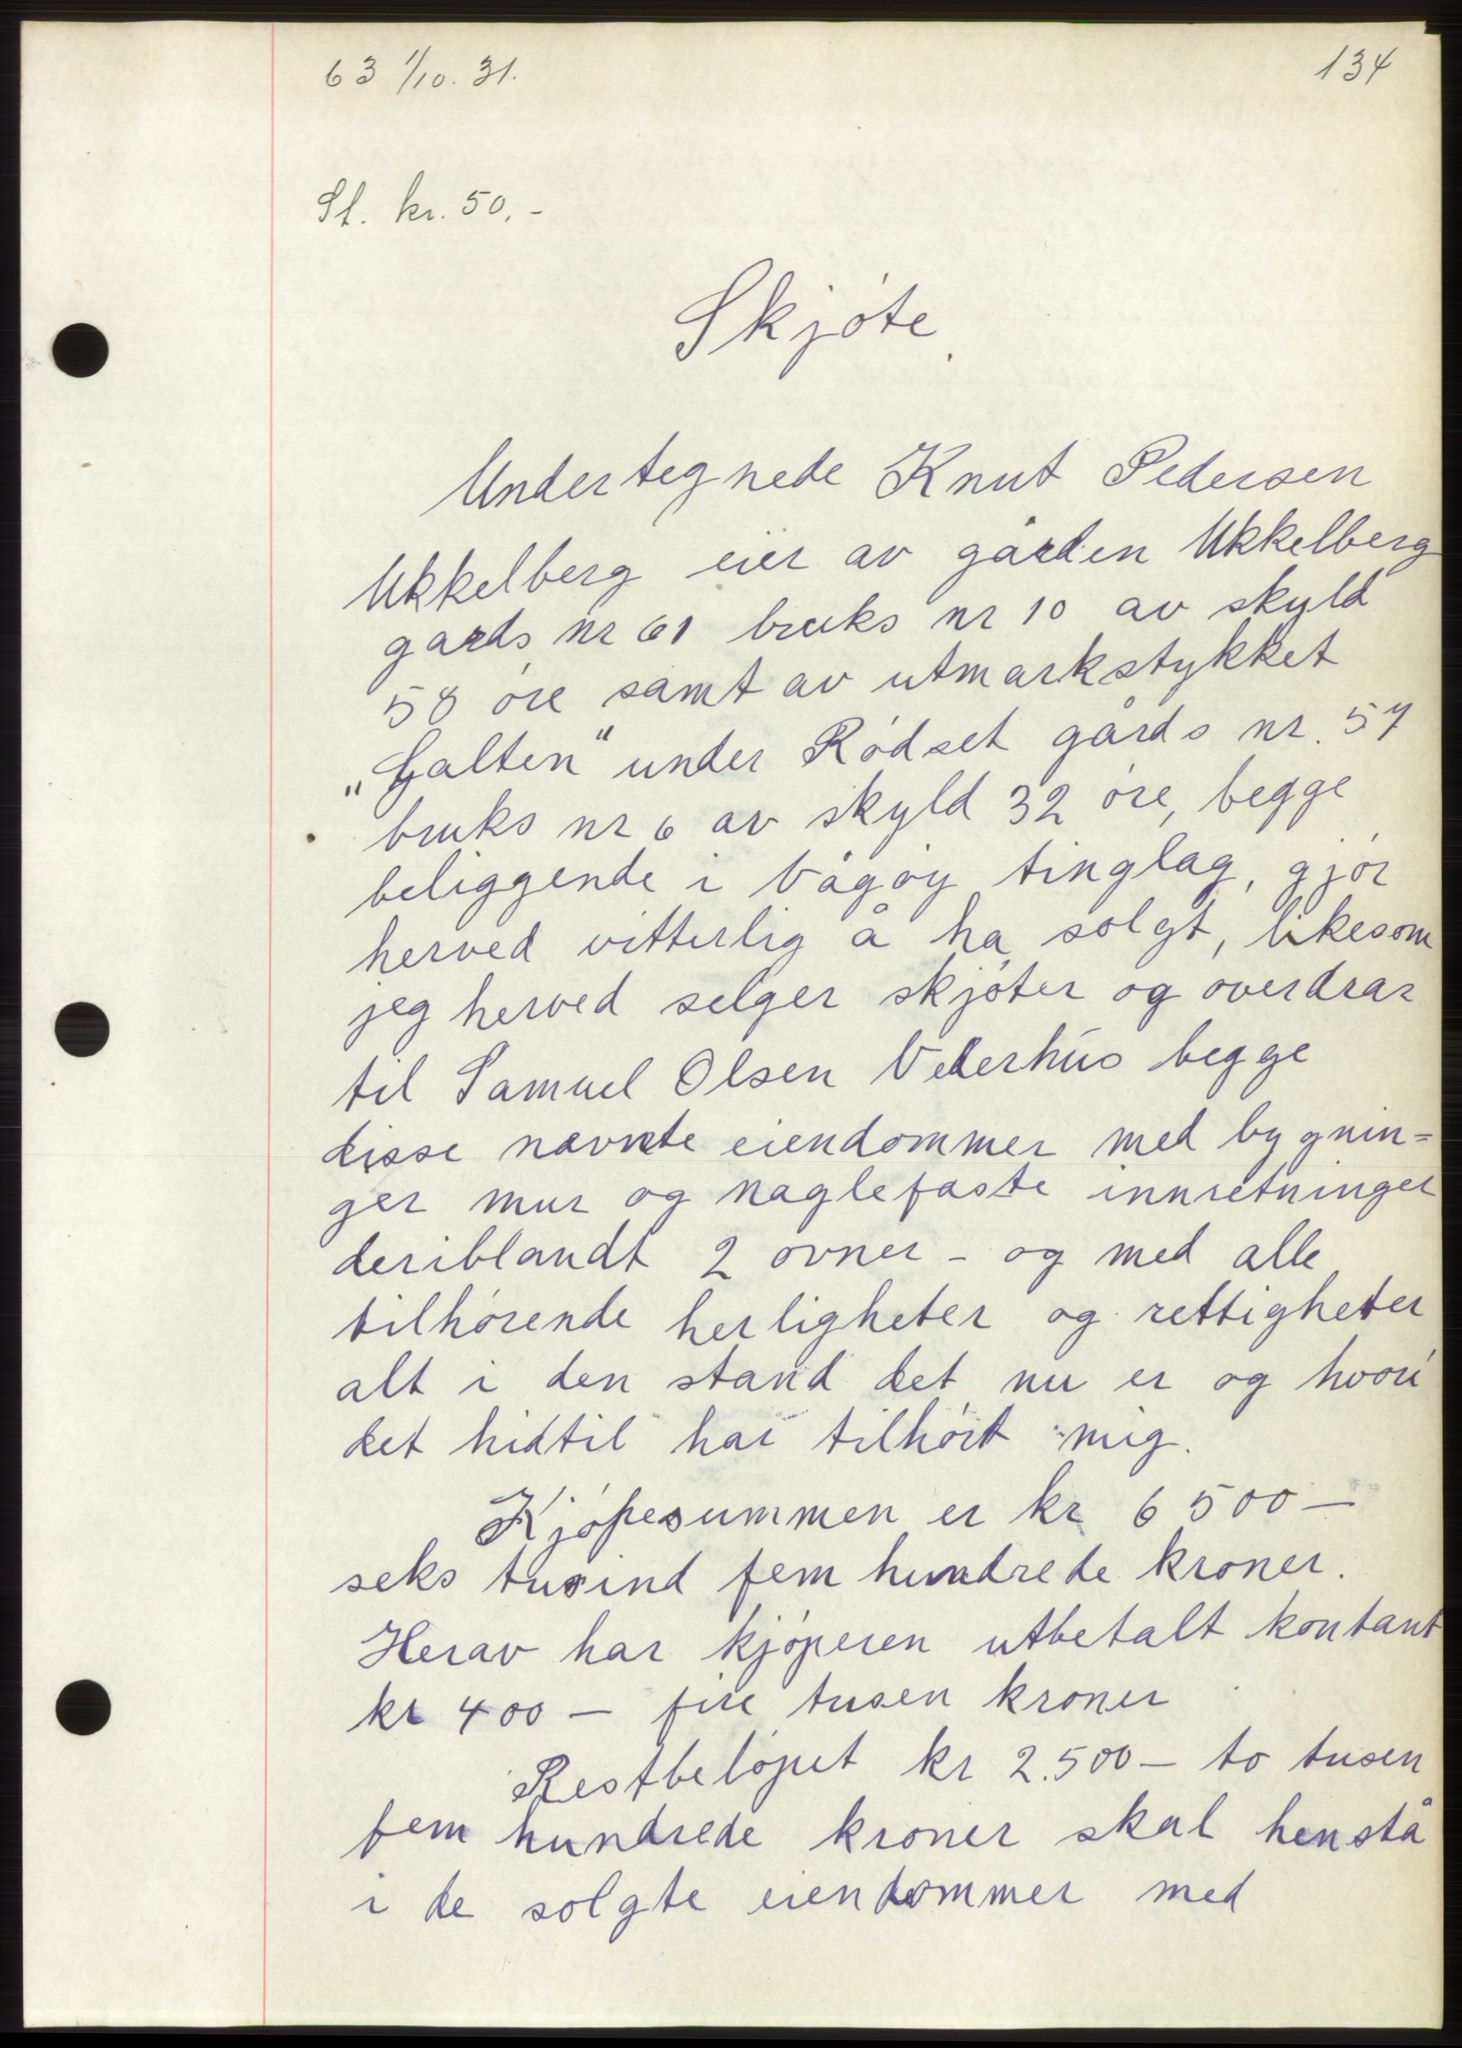 63 1/10. 31.
134
St. kr. 50.-
Skjóte.
Undertegnede Knut Pedersen
Ukkelberg eier av gården Ukkelberg
gards nr 61 bruks nr 10 av skyld
58 óre samt av utmarkstykket
„Galten" under Ródset gårds nr. 57
bruks nr 6 av skyld 32 óre, begge
beliggende i Vågóy tinglag, gjór
herved vitterlig å ha solgt, likesom
jeg herved selger skjóter og overdrar
til Samuel Olsen Vederhus begge
disse nævnte eiendommer med bygnin=
ger mur og naglefaste innretninger
deriblandt 2 ovner - og med alle
tilhórende herligheter og rettigheter
alt i den stand det nu er og hvori
det hidtil har tilhórt mig.
Kjópesummen er kr 6500 —
seks tusind fem hundrede kroner.
Herav har kjóperen utbetalt kontant
kr 400 — fire tusen kroner
Restbelópet kr 2.500 — to tusen
fem hundrede kroner skal henstå
i de solgte eiendommer med